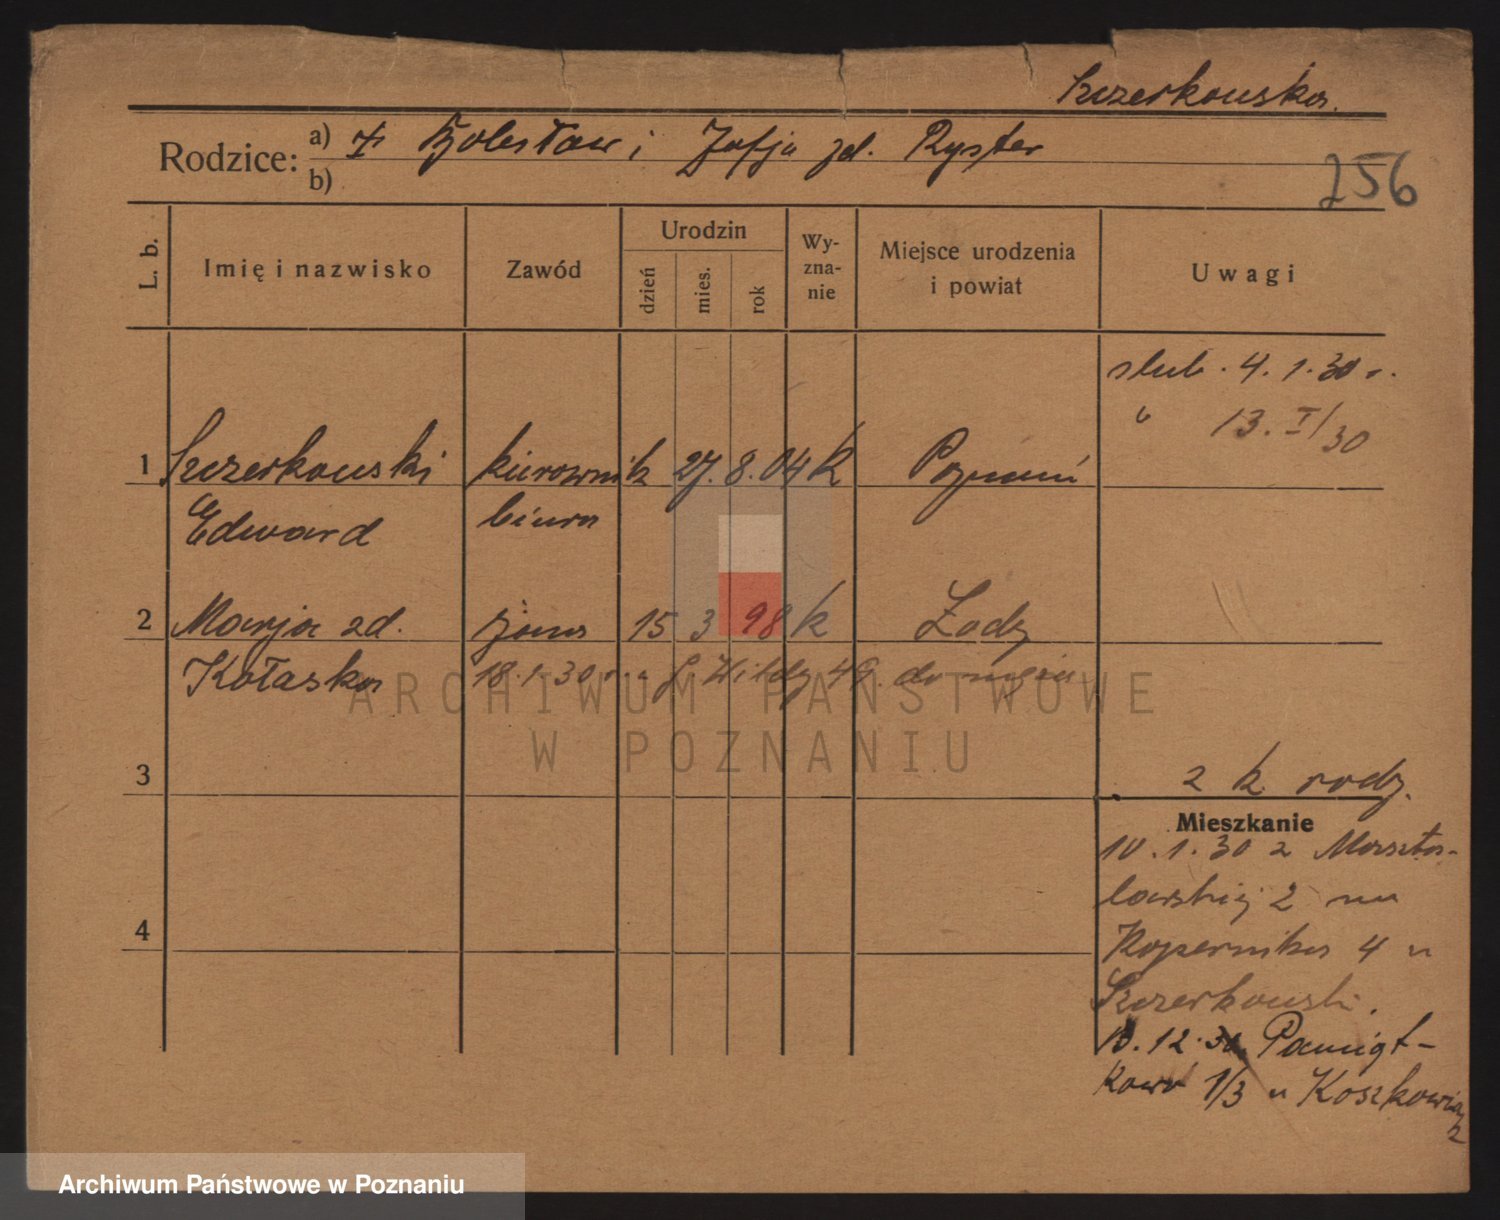 Szczerkowska.
Rodzice: a) Bolesław i Zofja zd. Ryster
b)
256
L. b. Imię i nazwisko Zawód Urodzin dzień mies. rok Wy-zna-nie Miejsce urodzenia i powiat Uwagi
ślub. 4.1.30 r.
" 13.I/30
1 Szczerkowski kierownik 27. 8. 04 k Poznań
Edward biura
2 Marja zd. żona 15 3 98 k Łódź
Kołaska 18.1.30 r. 49. do męża
ARCHIWUM PAŃSTWOWE
W POZNANIU
3
z k rodz.
Mieszkanie
10.1.30 z
2 na
4
Kopernika 4 u
Szczerkowski.
10.12.30 Pamiąt-
kowa 1/3 u Koszkowiaz
Archiwum Państwowe w Poznaniu